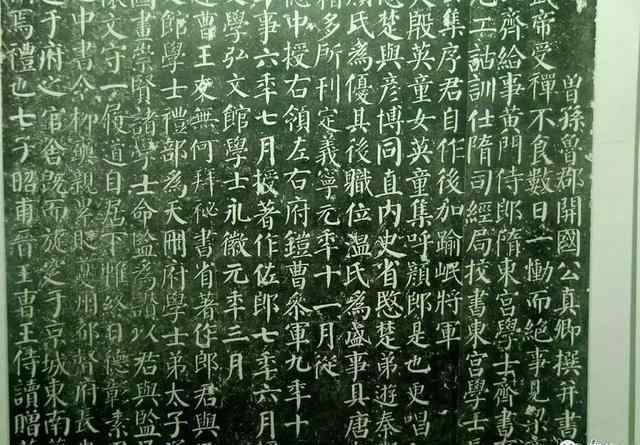 曾孫魯郡開國公真卿撰并書
帝受禪不食數日一慟而絕事見梁
齊給事黃門侍郎隋東宮學士齊書
工詁訓仕隋司經局校書東宮學士
集序君自作後加踰岷將軍
大殷英童女英童集呼顏郎是也更唱
愍楚與彥博同直內史省愍楚弟遊秦
顏氏為優其後職位溫氏為盛事具唐
多所刊定義寧元秊十一月從
德中授右領左右府鎧曹參軍九秊十
事六秊七月授著作佐郎七秊六月
文學弘文館學士永徽元秊三月
曹王友無何拜秘書省著作郎君與
館學士禮部為天冊府學士弟太子
圖畫崇賢諸學士命監為讚以君與監
懷文守一履道自居下帷終日德彰素
也中書令柳奭親累貶夔州都督府長
于府之官舍既而旋窆于京城東南
焉禮也七子昭甫晉王曹王侍讀贈